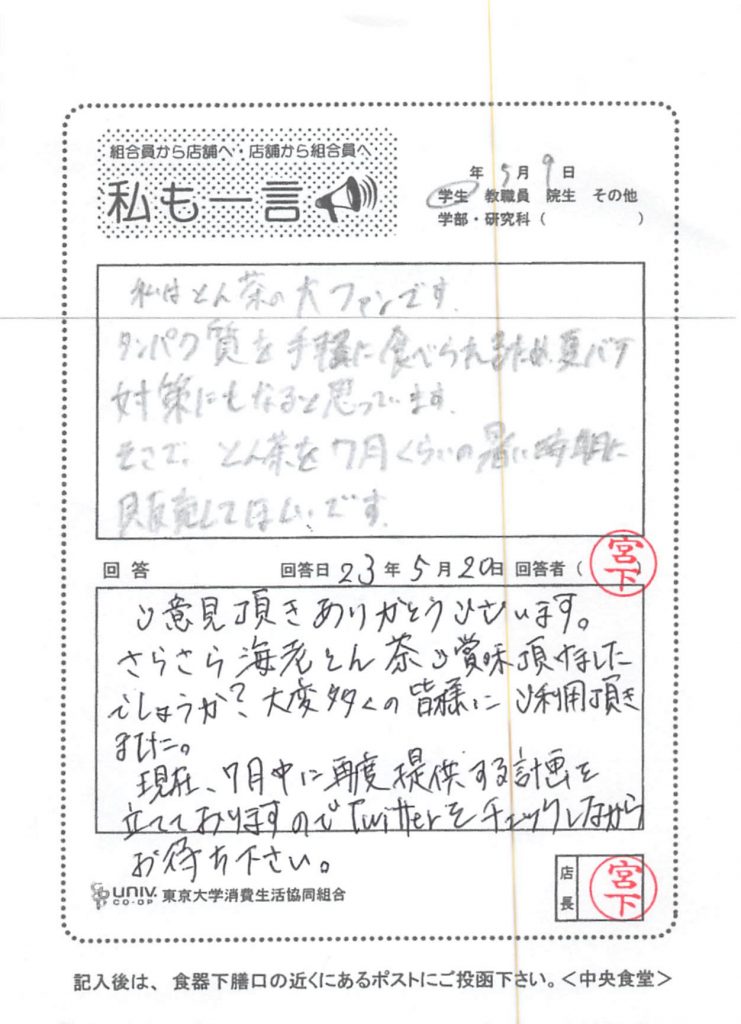 組合員から店舗へ・店舗から組合員へ
私も一言
年 5月 9日
学生 教職員 院生 その他
学部・研究科( )
私はとん茶の大ファンです。
タンパク質を手軽に食べられるため、夏バテ
対策にもなると思っています。
そこで、とん茶を7月くらいの暑い時期に
販売してほしいです。
回答 回答日 23年 5月 20日 回答者( 宮下 )
ご意見頂きありがとうございます。
さらさら海老とん茶ご賞味頂けました
でしょうか?大変多くの皆様にご利用頂き
ました。
現在、7月中に再度提供する計画を
立てておりますのでTwitterをチェックしながら
お待ち下さい。
UNIV.
CO-OP
東京大学消費生活協同組合
店長 宮下
記入後は、食器下膳口の近くにあるポストにご投函下さい。<中央食堂>